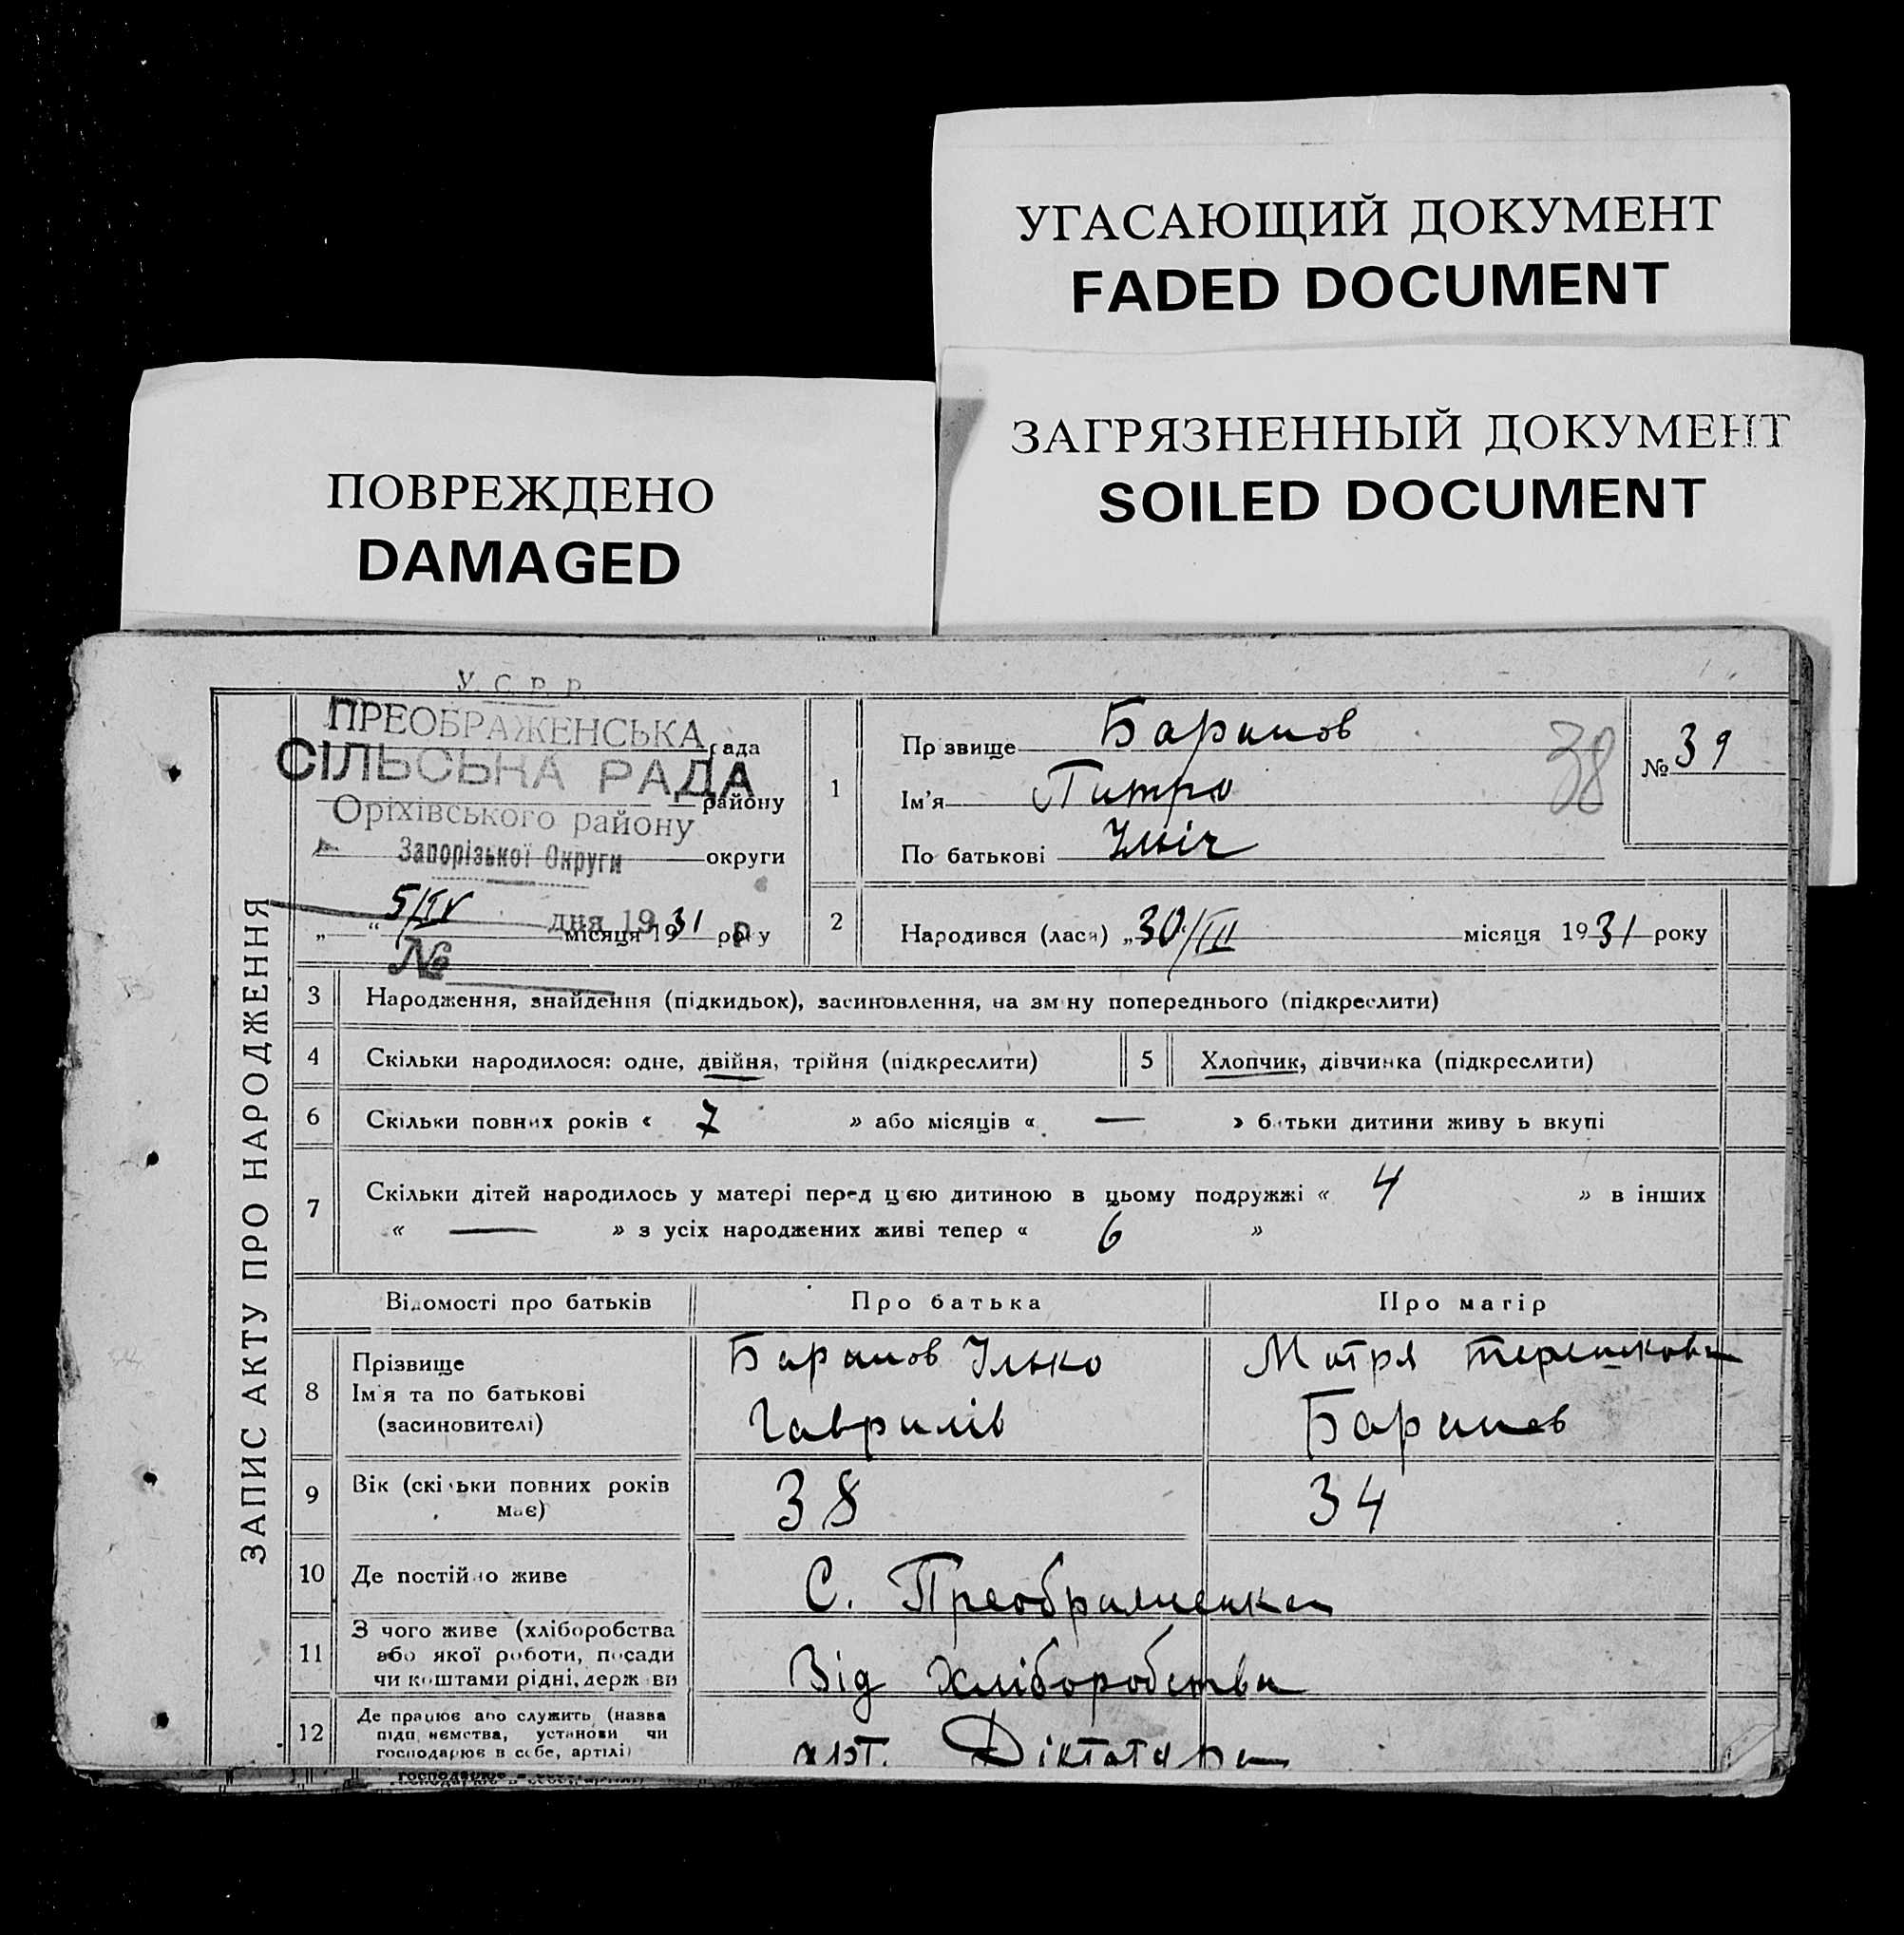 УГАСАЮЩИЙ ДОКУМЕНТ
FADED DOCUMENT
ЗАГРЯЗНЕННЫЙ ДОКУМЕНТ
SOILED DOCUMENT
ПОВРЕЖДЕНО
DAMAGED
ЗАПИС АКТУ ПРО НАРОДЖЕННЯ
У. С. Р. Р.
ПРЕОБРАЖЕНСЬКА рада
СІЛЬСЬКА РАДА
району
Оріхівського району
Запорізької Округи округи
5/IV дня 19
„ “ місяця 1931 року
№
1
Прізвище Баранов
Ім'я Питро
По батькові Ілліч
38
№ 39
2 Народився (лася) „30/III місяця 1931 року
3 Народження, знайдення (підкидьок), засиновлення, на зміну попереднього (підкреслити)
4 Скільки народилося: одне, двійня, трійня (підкреслити) 5 Хлопчик, дівчинка (підкреслити)
6 Скільки повних років « 7 » або місяців « — » батьки дитини живуть вкупі
7 Скільки дітей народилось у матері перед цією дитиною в цьому подружжі « 4 » в інших
« — » з усіх народжених живі тепер « 6 »
Відомості про батьків Про батька Про матір
8 Прізвище
Ім'я та по батькові
(засиновителі)
Баранов Ілько
Гаврилів
Мотря
Баранов
9 Вік (скільки повних років
має)
38 34
10 Де постійно живе С. Преображенка
11 З чого живе (хліборобства
або якої роботи, посади
чи коштами рідні, держави
Від хліборобства
12 Де працює або служить (назва
підприємства, установи чи
господарює в себе, артілі)
Діктатура